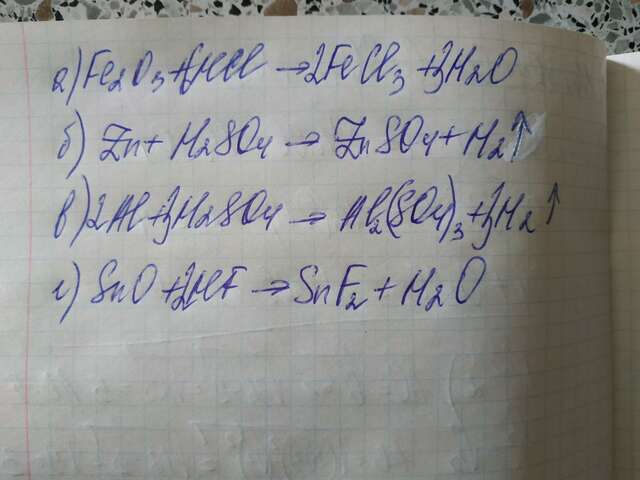 а) Fe₂O₃ + 6HCl → 2FeCl₃ + 3H₂O
б) Zn + H₂SO₄ → ZnSO₄ + H₂↑
в) 2Al + 3H₂SO₄ → Al₂(SO₄)₃ + 3H₂↑
г) SnO + 2HF → SnF₂ + H₂O